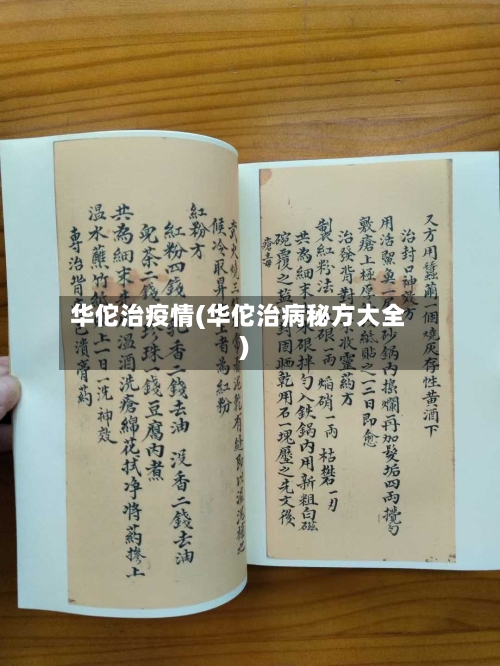 华佗治疫情(华佗治病秘方大全
)
又方用蚕茧一個燒灰存性黃酒下
治封口神效方
用活鯽魚一尾
砂鍋內搗爛再加髮垢四兩攪勻
敷瘡上極厚
紙貼之一二日即愈
治發背對
收靈药方
製紅粉法
硍一兩焔硝一兩枯礬一刃
共為細末
硍拌勻入鉄鍋內用新粗白磁
碗覆之鹽
封周晒乾用石一塊壓之先文後
瘡毒
武火燒三
候冷取昇
者為紅粉
紅粉方
紅粉四錢
香二錢去油
沒香二錢去油
兒茶二錢
珍珠一錢豆腐內煮
共為細末
温酒洗瘡綿花拭净將药摻上
温水蘸竹
上一日一洗神效
專治背
潰膏药